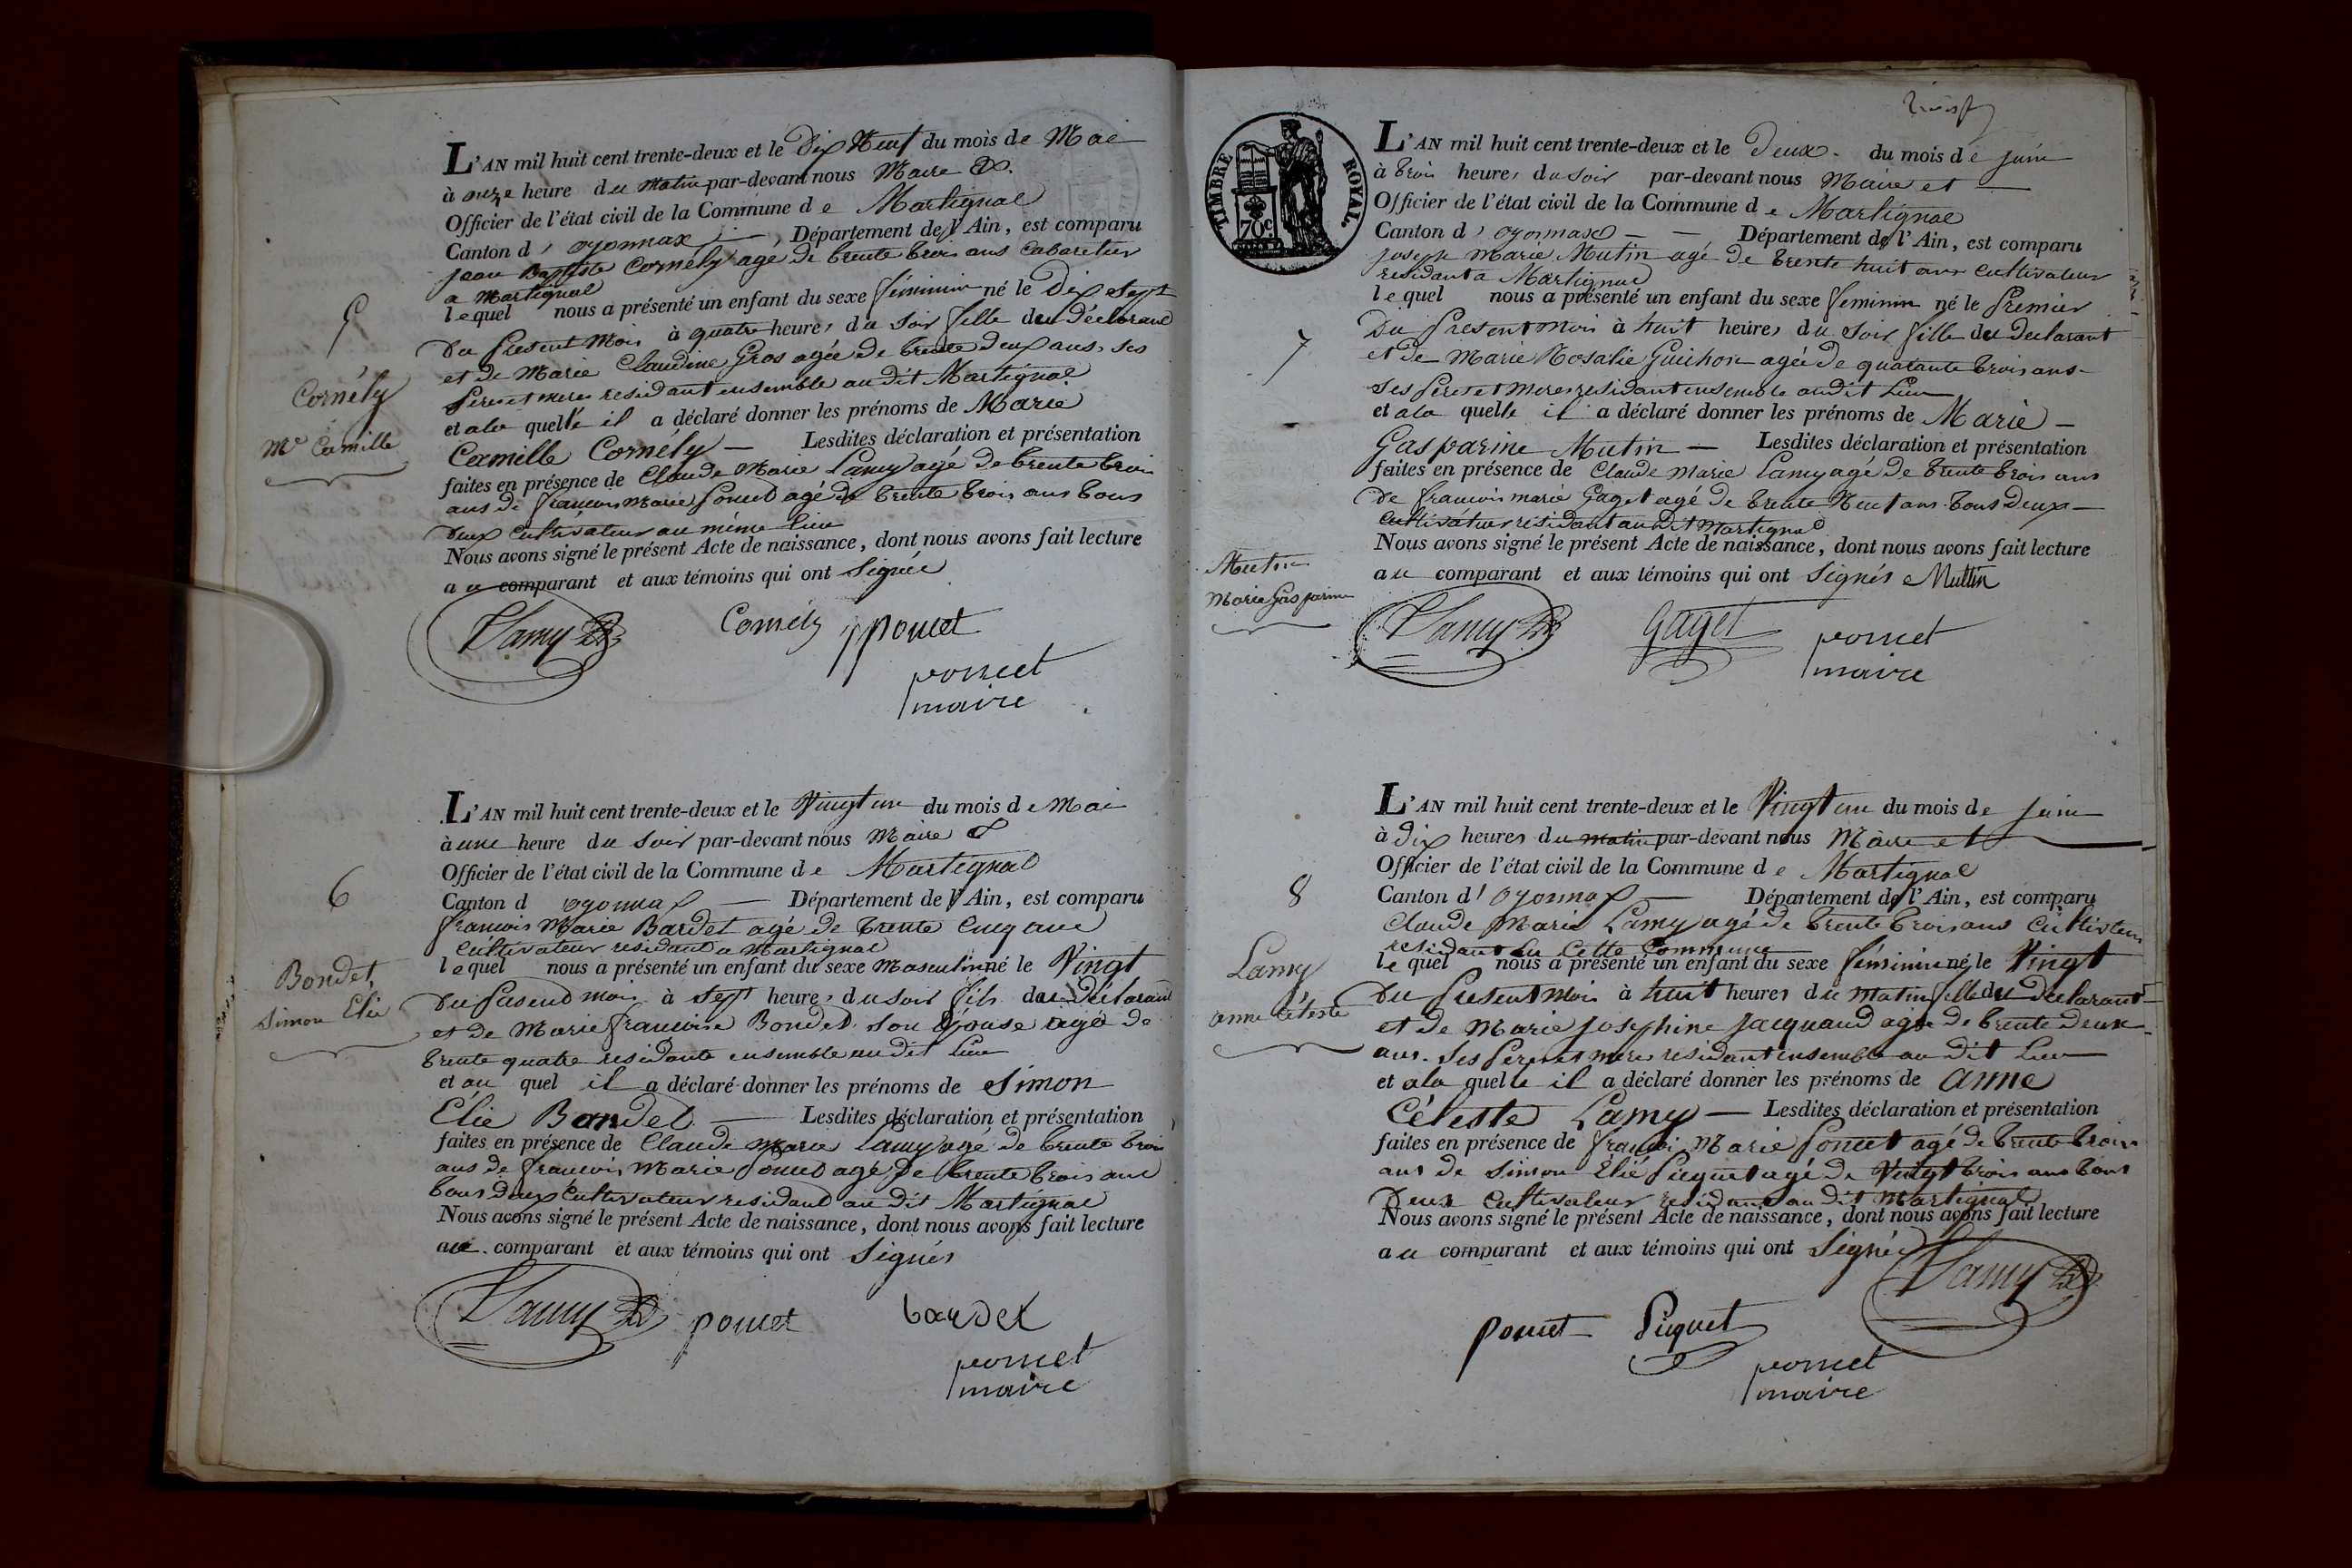 L'AN mil huit cent trente-deux et le dix Neuf du mois de Mai
à onze heure du matin par-devant nous Maire &.
Officier de l'état civil de la Commune de Martignat
Canton d' oyonnax, Département de l'Ain, est comparu
jean Baptiste Cornély agé de trente trois ans Cabaretier
a Martignat
lequel nous a présenté un enfant du sexe féminin né le Dix Sept
Du present Mois à quatre heures du Soir fille du déclarant
et de Marie Claudine Gros agée de trente deux ans, ses
peres et meres residant ensemble au dit Martignat
et a la quelle il a déclaré donner les prénoms de Marie
Camille Cornély — Lesdites déclaration et présentation
faites en présence de Claude Marie Lamy agé de trente trois
ans de francois Marie Poncet agé de trente trois ans tous
deux cultivateur au même lieu
Nous avons signé le présent Acte de naissance, dont nous avons fait lecture
au comparant et aux témoins qui ont Signée
5
Cornély
Mie Camille
Lamy
Cornély
poncet
poncet
maire
L'AN mil huit cent trente-deux et le Vingt un du mois de Mai
à une heure du soir par-devant nous Maire &
Officier de l'état civil de la Commune de Martignat
Canton d oyonnax — Département de l'Ain, est comparu
francois Marie Bardet agé de trente Cinq ans
Cultivateur residant a Martignat
lequel nous a présenté un enfant du sexe Masculin né le Vingt
Du present mois à sept heures du soir fils du déclarant
et de Marie francoise Bondet son Epouse agée de
trente quatre residants ensemble au dit Lieu
et au quel il a déclaré donner les prénoms de Simon
Élie Bardet — Lesdites déclaration et présentation
faites en présence de Claude Marie Lamy agé de trente trois
ans de francois Marie Poncet agé de trente trois ans
tous deux Cultivateur residant au dit Martignat
Nous avons signé le présent Acte de naissance, dont nous avons fait lecture
au comparant et aux témoins qui ont Signés
6
Bondet,
Simon Elie
Lamy
poncet
bardet
poncet
maire
TIMBRE ROYAL
70c
L'AN mil huit cent trente-deux et le Deux du mois de juin
à trois heures du soir par-devant nous Maire et —
Officier de l'état civil de la Commune de Martignat
Canton d' oyonnax — — Département de l'Ain, est comparu
joseph Marie Mutin agé de trente huit ans Cultivateur
residant a Martignat
lequel nous a présenté un enfant du sexe feminin né le Premier
Du Present mois à huit heures du soir fille du declarant
et de Marie Rosalie Guichon agée de quatante trois ans —
Ses peres et meres residant ensemble audit Lieu
et a la quelle il a déclaré donner les prénoms de Marie —
Gasparine Mutin — Lesdites déclaration et présentation
faites en présence de Claude Marie Lamy agé de trente trois ans
de francois marie Gaget agé de trente Neuf ans tous Deux —
Cultivateur residant au dit Martignat
Nous avons signé le présent Acte de naissance, dont nous avons fait lecture
au comparant et aux témoins qui ont Signés Muttin
7
Mutin
Marie Gasparine
Lamy
Gaget
poncet
maire
L'AN mil huit cent trente-deux et le Vingt un du mois de juin
à dix heures du matin par-devant nous Maire et
Officier de l'état civil de la Commune de Martignat
Canton d' oyonnax — Département de l'Ain, est comparu
Claude Marie Lamy agé de trente trois ans Cultivateur
residant en Cette Commune
lequel nous a présenté un enfant du sexe féminin né le Vingt
Du present Mois à huit heures du Matin fille du declarant
et de Marie josephine jacquand agée de trente Deux
ans. Ses peres et mere residant ensemble au dit Lieu
et a la quelle il a déclaré donner les prénoms de Anne
Céleste Lamy — Lesdites déclaration et présentation
faites en présence de francoi Marie Poncet agé de trente trois
ans de Simon Elie Piquet agé de Vingt trois ans tous
Deux Cultivateur residans au dit Martignat
Nous avons signé le présent Acte de naissance, dont nous avons fait lecture
au comparant et aux témoins qui ont Signé
8
Lamy
anne Céleste
Lamy
poncet
Piquet
poncet
maire